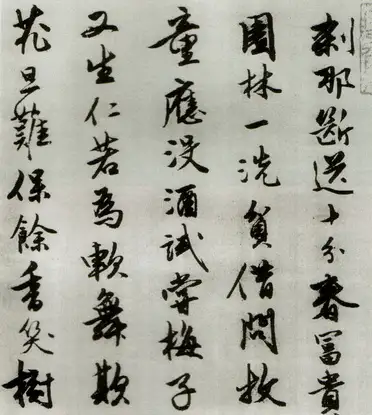 剎那斷送十分春富貴
園林一洗貧借問牧
童應沒酒試嘗梅子
又生仁若為軟舞欺
花旦難保餘香笑樹